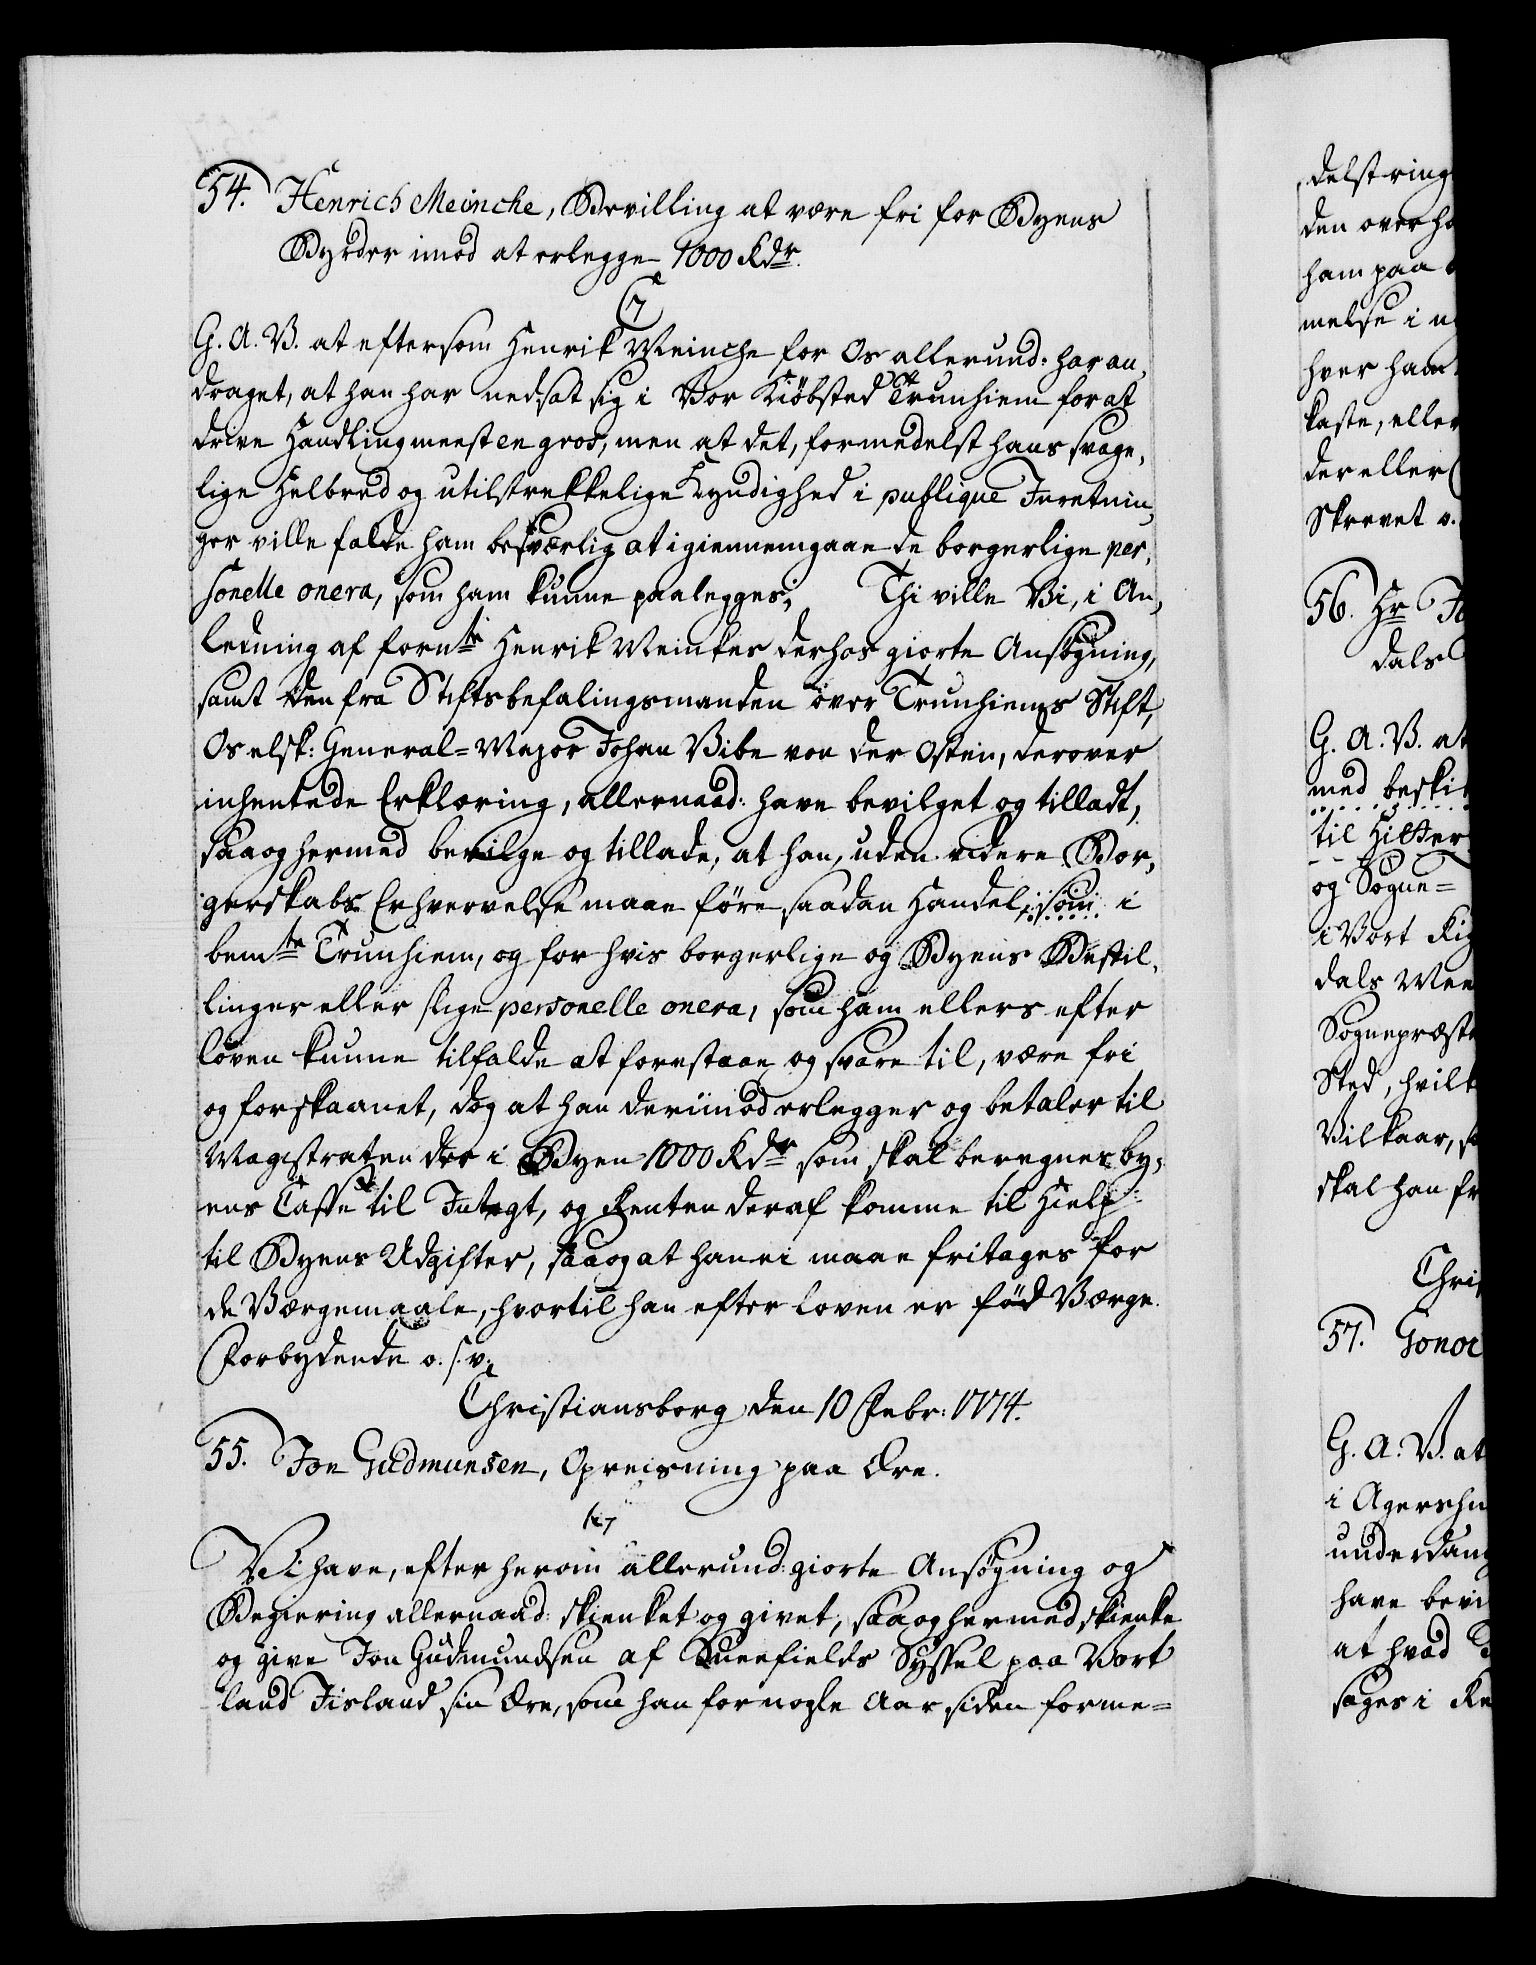 54. Henrich Meincke, Bevilling at være fri for Byens
Byrder imod at erlegge 1000 Rdr.
C7
G. A. V. at eftersom Henrik Meincke for Os allerund: har an„
draget, at han har nedsat sig i Vor Kiöbsted Trunhiem for at
drive Handling meest en gros, men at det, formedelst hans svage„
lige Helbred og utilstrekkelige Kyndighed i publique Inretnin„
ger ville falde ham besværlig at igiennemgaae de borgerlige per„
sonelle onera, som ham kunne paalegges; Thi ville Vi, i An„
ledning af fornte Henrik Meinkes derhos giorte Ansøgning,
samt den fra Stiftsbefalingsmanden over Trunhiems Stift,
Os elsk: General-Major Johan Vibe von der Osten, derover
inhentede Erklæring, allernaad: have bevilget og tilladt,
saa og hermed bevilge og tillade, at han, uden videre Bor„
gerskabs Erhvervelse maae føre saadan Handel, som i
bemte Trunhiem, og for hvis borgerlige og Byens Bestil„
linger eller slige personelle onera, som ham ellers efter
loven kunne tilfalde at forestaae og svare til, være fri
og forskaanet, dog at han derimod erlegger og betaler til
Magistraten der i Byen 1000 Rdr som skal beregnes by„
ens Casse til Intægt, og Renten deraf komme til Hielp
til Byens Udgifter, saa og at han ei maae fritages for
de Værgemaale, hvortil han efter loven er fød Værge.
Forbydende o. s. v.
Christiansborg den 10 Febr: 1774.
55. Jon Gudmunsen, Opreisning paa Ære.
C7
Vi have, efter herom allerund: giorte Ansøgning og
Begiering allernaad: skienket og givet, saa og hermed skienke
og give Jon Gudmundsen af Sneefields Syssel paa Vort
land Iisland sin Ære, som han for nogle Aar siden forme-
delst ring
den over ho
ham paa
melse i
hver ham
kaste, eller
der eller
Skrevet o.
56. Hr
dals
G. A. V. at
med beski
til Hitter
og Sogne-
i Vort Rig
dals
Sognepræst
Sted, hvilk
Vilkaar,
skal han fr
Chris
57.
G. A. V. at
i Agershu
underdan
have bevi
at hvad
søges i Re